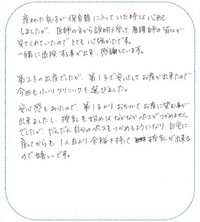 産まれた息子が保育器に入っていた時は心配
しましたが、医師の方から説明を受け、看護師の皆さんが
見てくれていたのでとても心強かったです。
一緒に退院出来る事が出来、感謝しています。
第2子の出産でしたが、第1子で安心してお産が出来たので
今回も小川クリニックを選びました。
安心感もあったので、第1子よりおちついてお産に望む事が
出来ましたし、授乳も始めはなかなかペースがつかめません
でしたが、だんだん自分のペースもつかめるようになり、自宅に
戻ってからも1人目より余裕を持って授乳が出来る
ので嬉しいです。